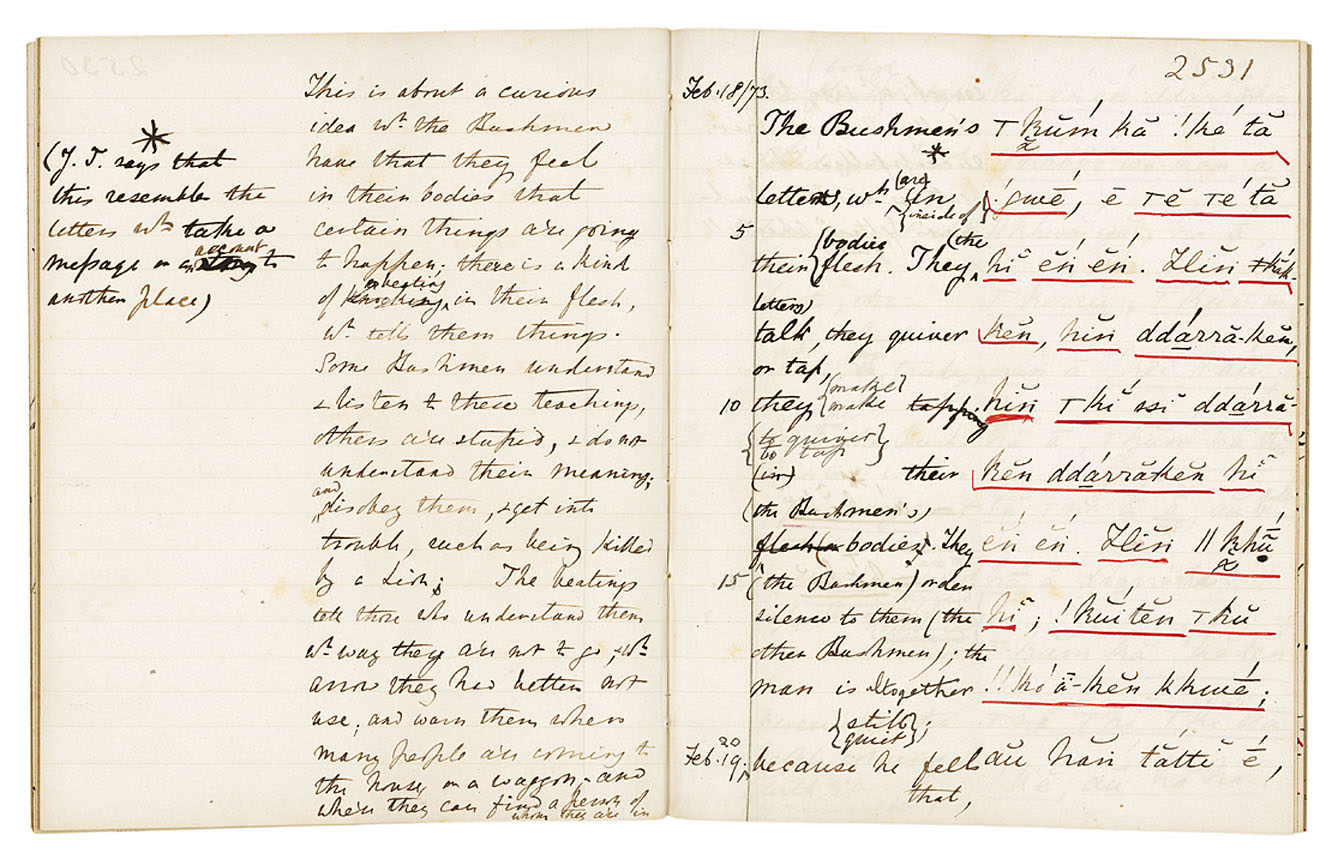 (J. T. says that
this resembles the
letters wh. take a
message or account to
another place)
This is about a curious
idea wh. the Bushmen
have that they feel
in their bodies that
certain things are going
to happen; there is a kind
of beating in their flesh,
wh. tells them things.
Some Bushmen understand
& listen to these teachings,
others are stupid, & do not
understand their meaning;
and disobey them, & get into
trouble, such as being killed
by a Lion; The beatings
tell those who understand them
wh. way they are not to go, & wh.
arrow they had better not
use; and warn them when
many people are coming to
the house on a waggon, and
where they can find a person of
whom they are in
2531
Feb. 18/73.
The Bushmen's ㅜ k̆ŭm kă !ké tă
letters, wh. (are {in !gwé, ĕ ㅜĕ ㅜé tă
{inside of}
5 {bodies (the
their {flesh. They hĭ ĕń ĕń. Hĭń
letters)
talk, they quiver kĕn, hĭń ddá̱rră-kĕn,
or tap,
{make}
10 they {make tapping hĭń ㅜkĭ ssĭ ddá̱rră-
{to quiver}
to tap
(in) their kĕn ddá̱rră-kĕn hĭ
(the Bushmen's)
flesh (or bodies). They ĕń ĕń. Hĭń ǁkhŭ
15 (the Bushmen) order
silence to them (the hĭ; !kŭĭtĕn ㅜkŭ
other Bushmen); the
man is altogether !!kó̆ă-kĕn kkwĕ́;
{still};
{quiet}
20
Feb. 19. because he feels aŭ hăń tá́ttĭ ĕ́,
that,